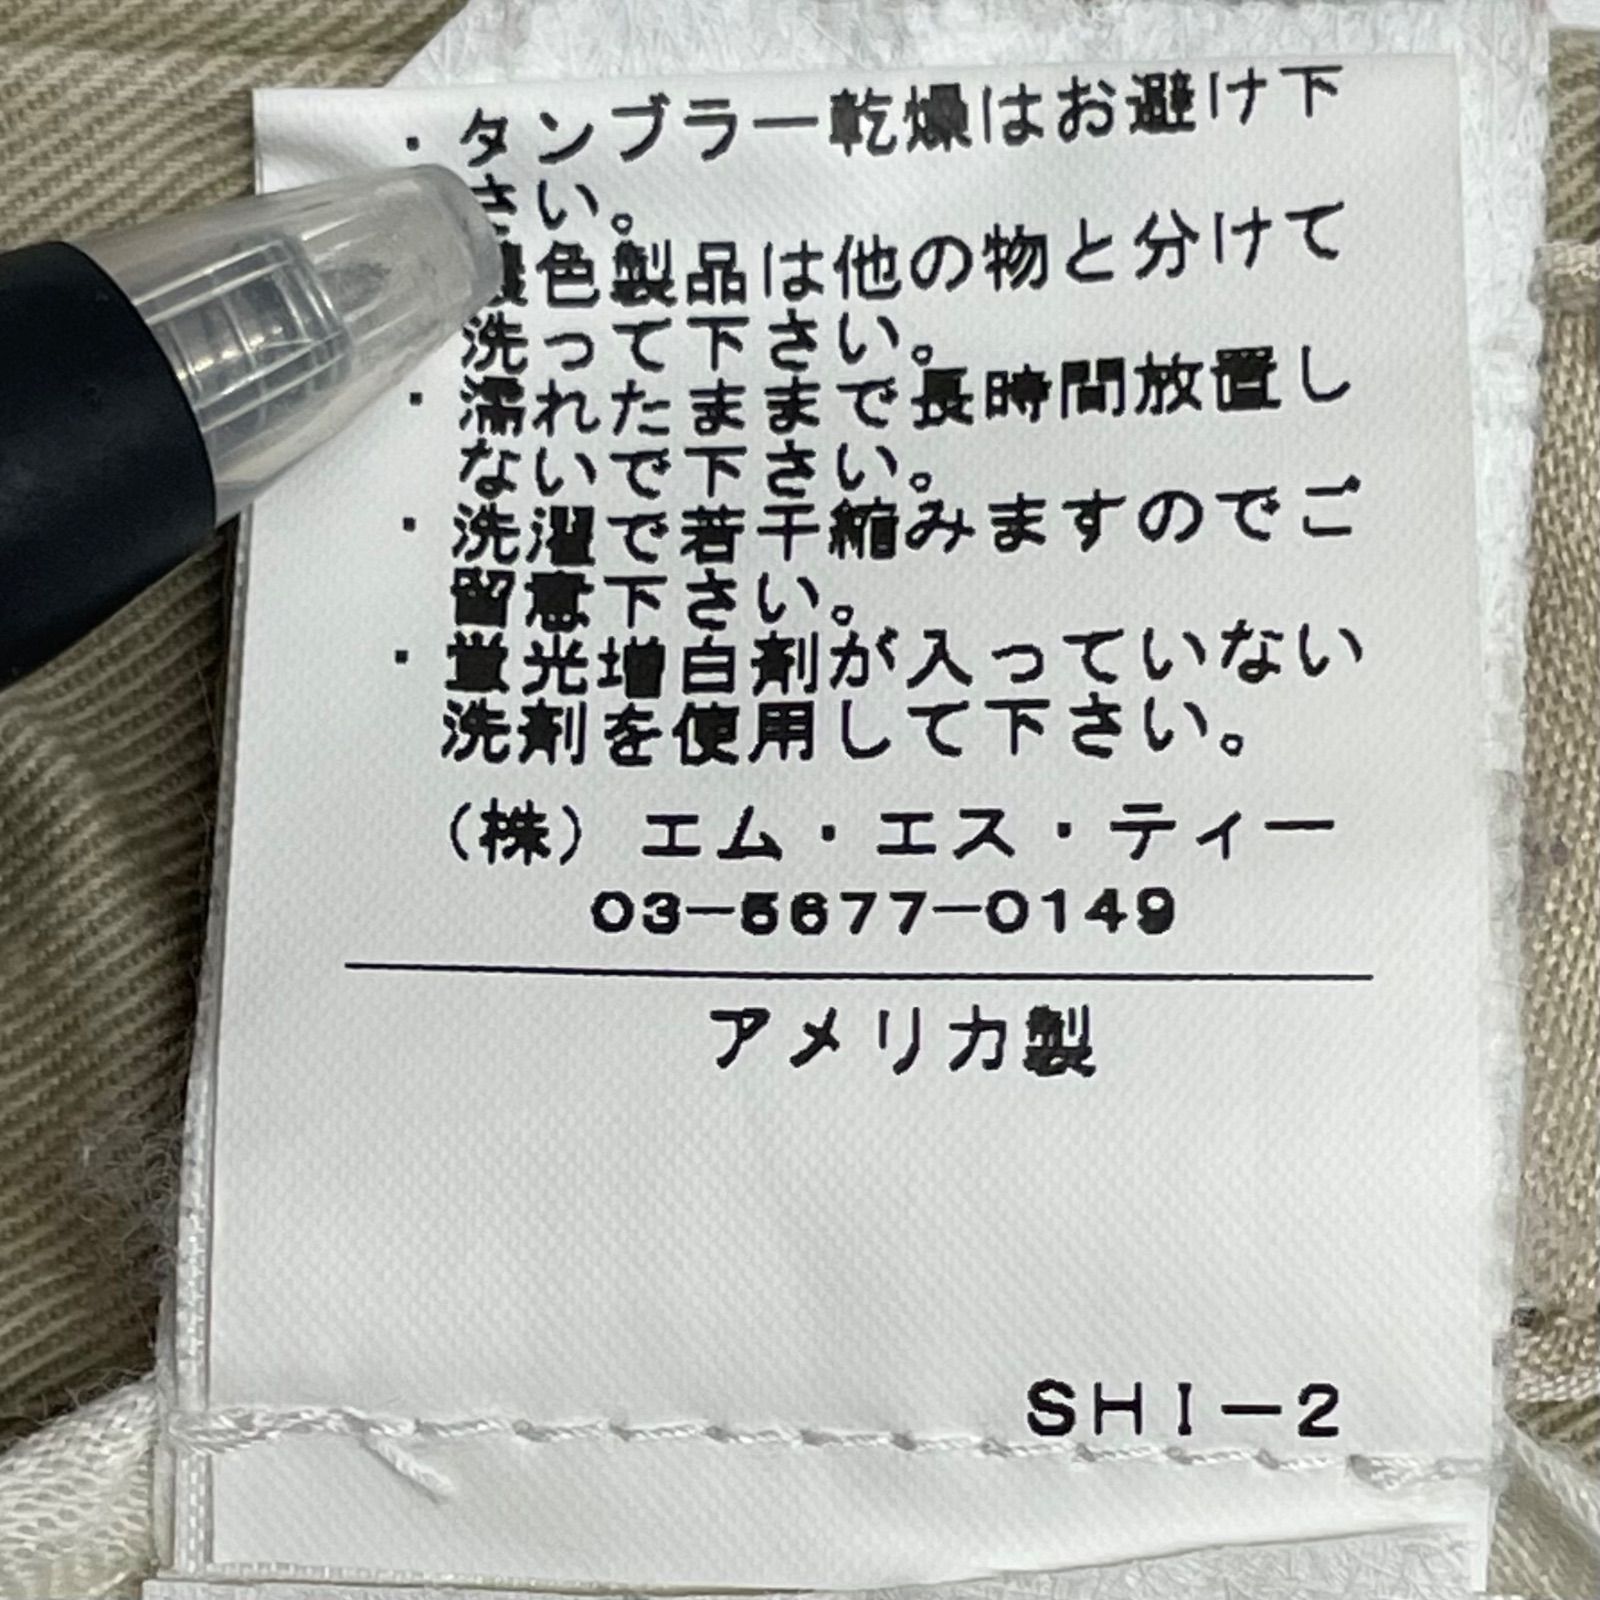 ・タンブラー乾燥はお避け下
さい。
濃色製品は他の物と分けて
洗って下さい。
・濡れたままで長時間放置し
ないで下さい。
・洗濯で若干縮みますのでご
留意下さい。
・蛍光増白剤が入っていない
洗剤を使用して下さい。
(株) エム・エス・ティー
03-5677-0149
アメリカ製
SHI-2